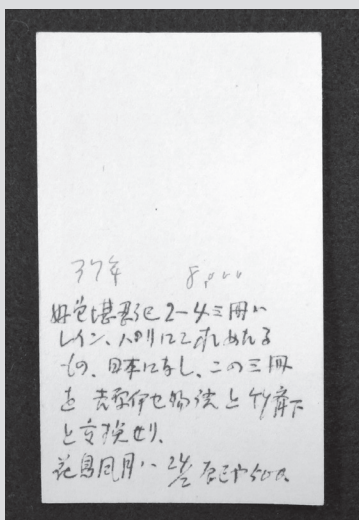 37年 8,000
好色堪忍記2-4三冊ハ
レイン、パリにて求めたる
もの、日本になし、この三冊
を 去京伊セ物語と竹斎下
と交換せり、
花鳥風月ハ 24/2